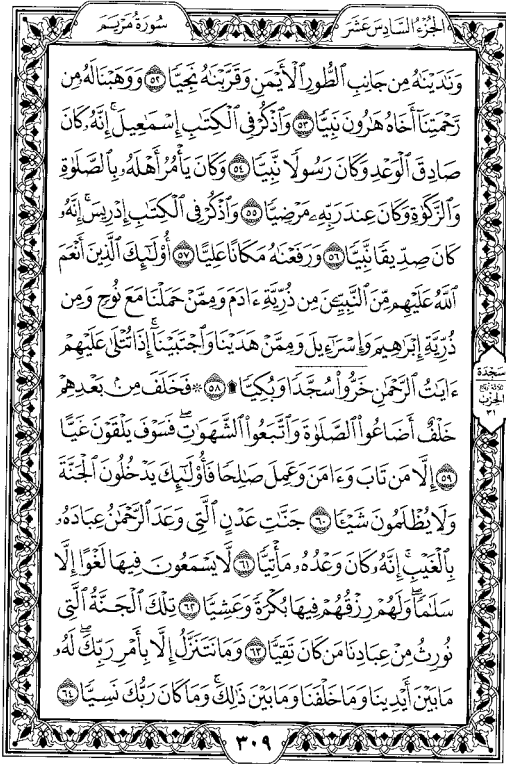 الجزء السادس عشر
سورة مريم
وَنَٰدَيْنَٰهُ مِن جَانِبِ ٱلطُّورِ ٱلْأَيْمَنِ وَقَرَّبْنَٰهُ نَجِيًّا ۝٥٢ وَوَهَبْنَا لَهُۥ مِن
رَّحْمَتِنَآ أَخَاهُ هَٰرُونَ نَبِيًّا ۝٥٣ وَٱذْكُرْ فِى ٱلْكِتَٰبِ إِسْمَٰعِيلَ ۚ إِنَّهُۥ كَانَ
صَادِقَ ٱلْوَعْدِ وَكَانَ رَسُولًا نَّبِيًّا ۝٥٤ وَكَانَ يَأْمُرُ أَهْلَهُۥ بِٱلصَّلَوٰةِ
وَٱلزَّكَوٰةِ وَكَانَ عِندَ رَبِّهِۦ مَرْضِيًّا ۝٥٥ وَٱذْكُرْ فِى ٱلْكِتَٰبِ إِدْرِيسَ ۚ إِنَّهُۥ
كَانَ صِدِّيقًا نَّبِيًّا ۝٥٦ وَرَفَعْنَٰهُ مَكَانًا عَلِيًّا ۝٥٧ أُو۟لَٰٓئِكَ ٱلَّذِينَ أَنْعَمَ
ٱللَّهُ عَلَيْهِم مِّنَ ٱلنَّبِيِّـۧنَ مِن ذُرِّيَّةِ ءَادَمَ وَمِمَّنْ حَمَلْنَا مَعَ نُوحٍ وَمِن
ذُرِّيَّةِ إِبْرَٰهِيمَ وَإِسْرَٰٓءِيلَ وَمِمَّنْ هَدَيْنَا وَٱجْتَبَيْنَآ ۚ إِذَا تُتْلَىٰ عَلَيْهِمْ
ءَايَٰتُ ٱلرَّحْمَٰنِ خَرُّوا۟ سُجَّدًا وَبُكِيًّا ۩ ۝٥٨ ۞ فَخَلَفَ مِنۢ بَعْدِهِمْ
خَلْفٌ أَضَاعُوا۟ ٱلصَّلَوٰةَ وَٱتَّبَعُوا۟ ٱلشَّهَوَٰتِ ۖ فَسَوْفَ يَلْقَوْنَ غَيًّا
۝٥٩ إِلَّا مَن تَابَ وَءَامَنَ وَعَمِلَ صَٰلِحًا فَأُو۟لَٰٓئِكَ يَدْخُلُونَ ٱلْجَنَّةَ
وَلَا يُظْلَمُونَ شَيْـًٔا ۝٦٠ جَنَّٰتِ عَدْنٍ ٱلَّتِى وَعَدَ ٱلرَّحْمَٰنُ عِبَادَهُۥ
بِٱلْغَيْبِ ۚ إِنَّهُۥ كَانَ وَعْدُهُۥ مَأْتِيًّا ۝٦١ لَّا يَسْمَعُونَ فِيهَا لَغْوًا إِلَّا
سَلَٰمًا ۖ وَلَهُمْ رِزْقُهُمْ فِيهَا بُكْرَةً وَعَشِيًّا ۝٦٢ تِلْكَ ٱلْجَنَّةُ ٱلَّتِى
نُورِثُ مِنْ عِبَادِنَا مَن كَانَ تَقِيًّا ۝٦٣ وَمَا نَتَنَزَّلُ إِلَّا بِأَمْرِ رَبِّكَ ۖ لَهُۥ
مَا بَيْنَ أَيْدِينَا وَمَا خَلْفَنَا وَمَا بَيْنَ ذَٰلِكَ ۚ وَمَا كَانَ رَبُّكَ نَسِيًّا ۝٦٤
سجدة
ثلاثة أرباع
الحزب
٣١
٣٠٩